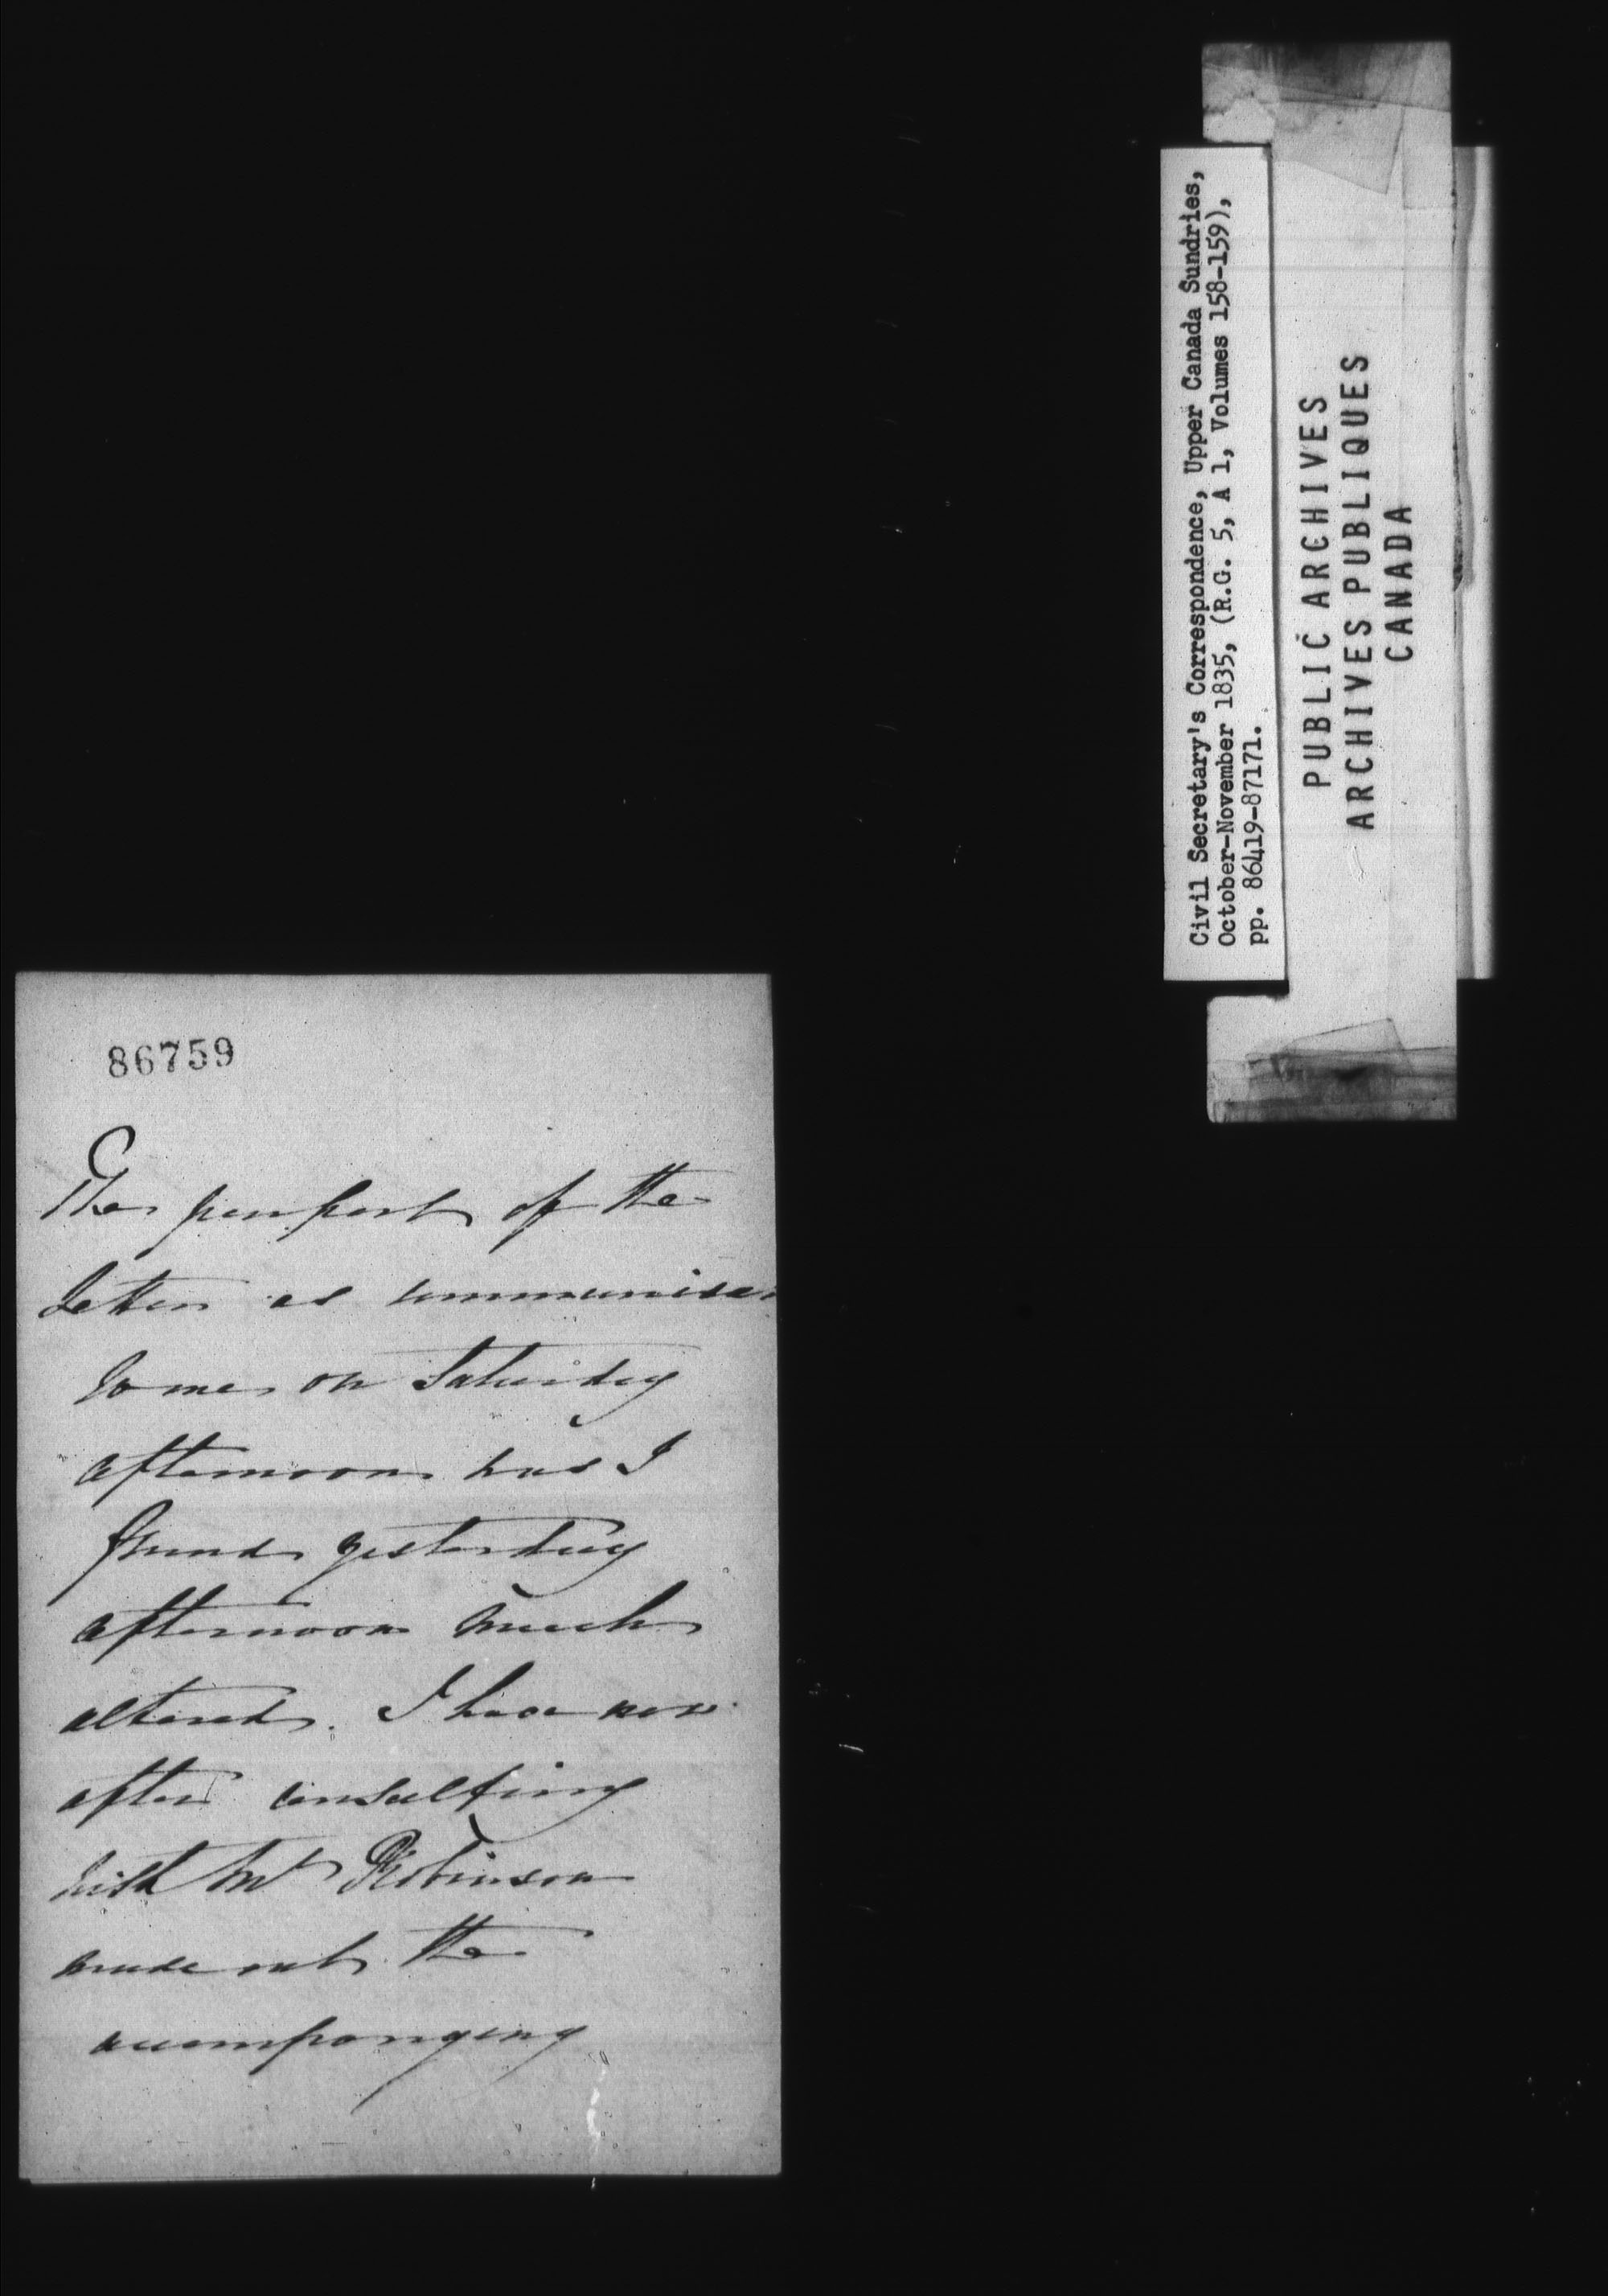 86759
The purport of the
letter as communica
to me on Saturday
afternoon was I
found yesterday
afternoon much
altered. I have now
after consulting
with Mr Robinson
made out the
accompanying
Civil Secretary's Correspondence, Upper Canada Sundries,
October-November 1835, (R.G. 5, A 1, Volumes 158-159),
pp. 86419-87171.
PUBLIC ARCHIVES
ARCHIVES PUBLIQUES
CANADA